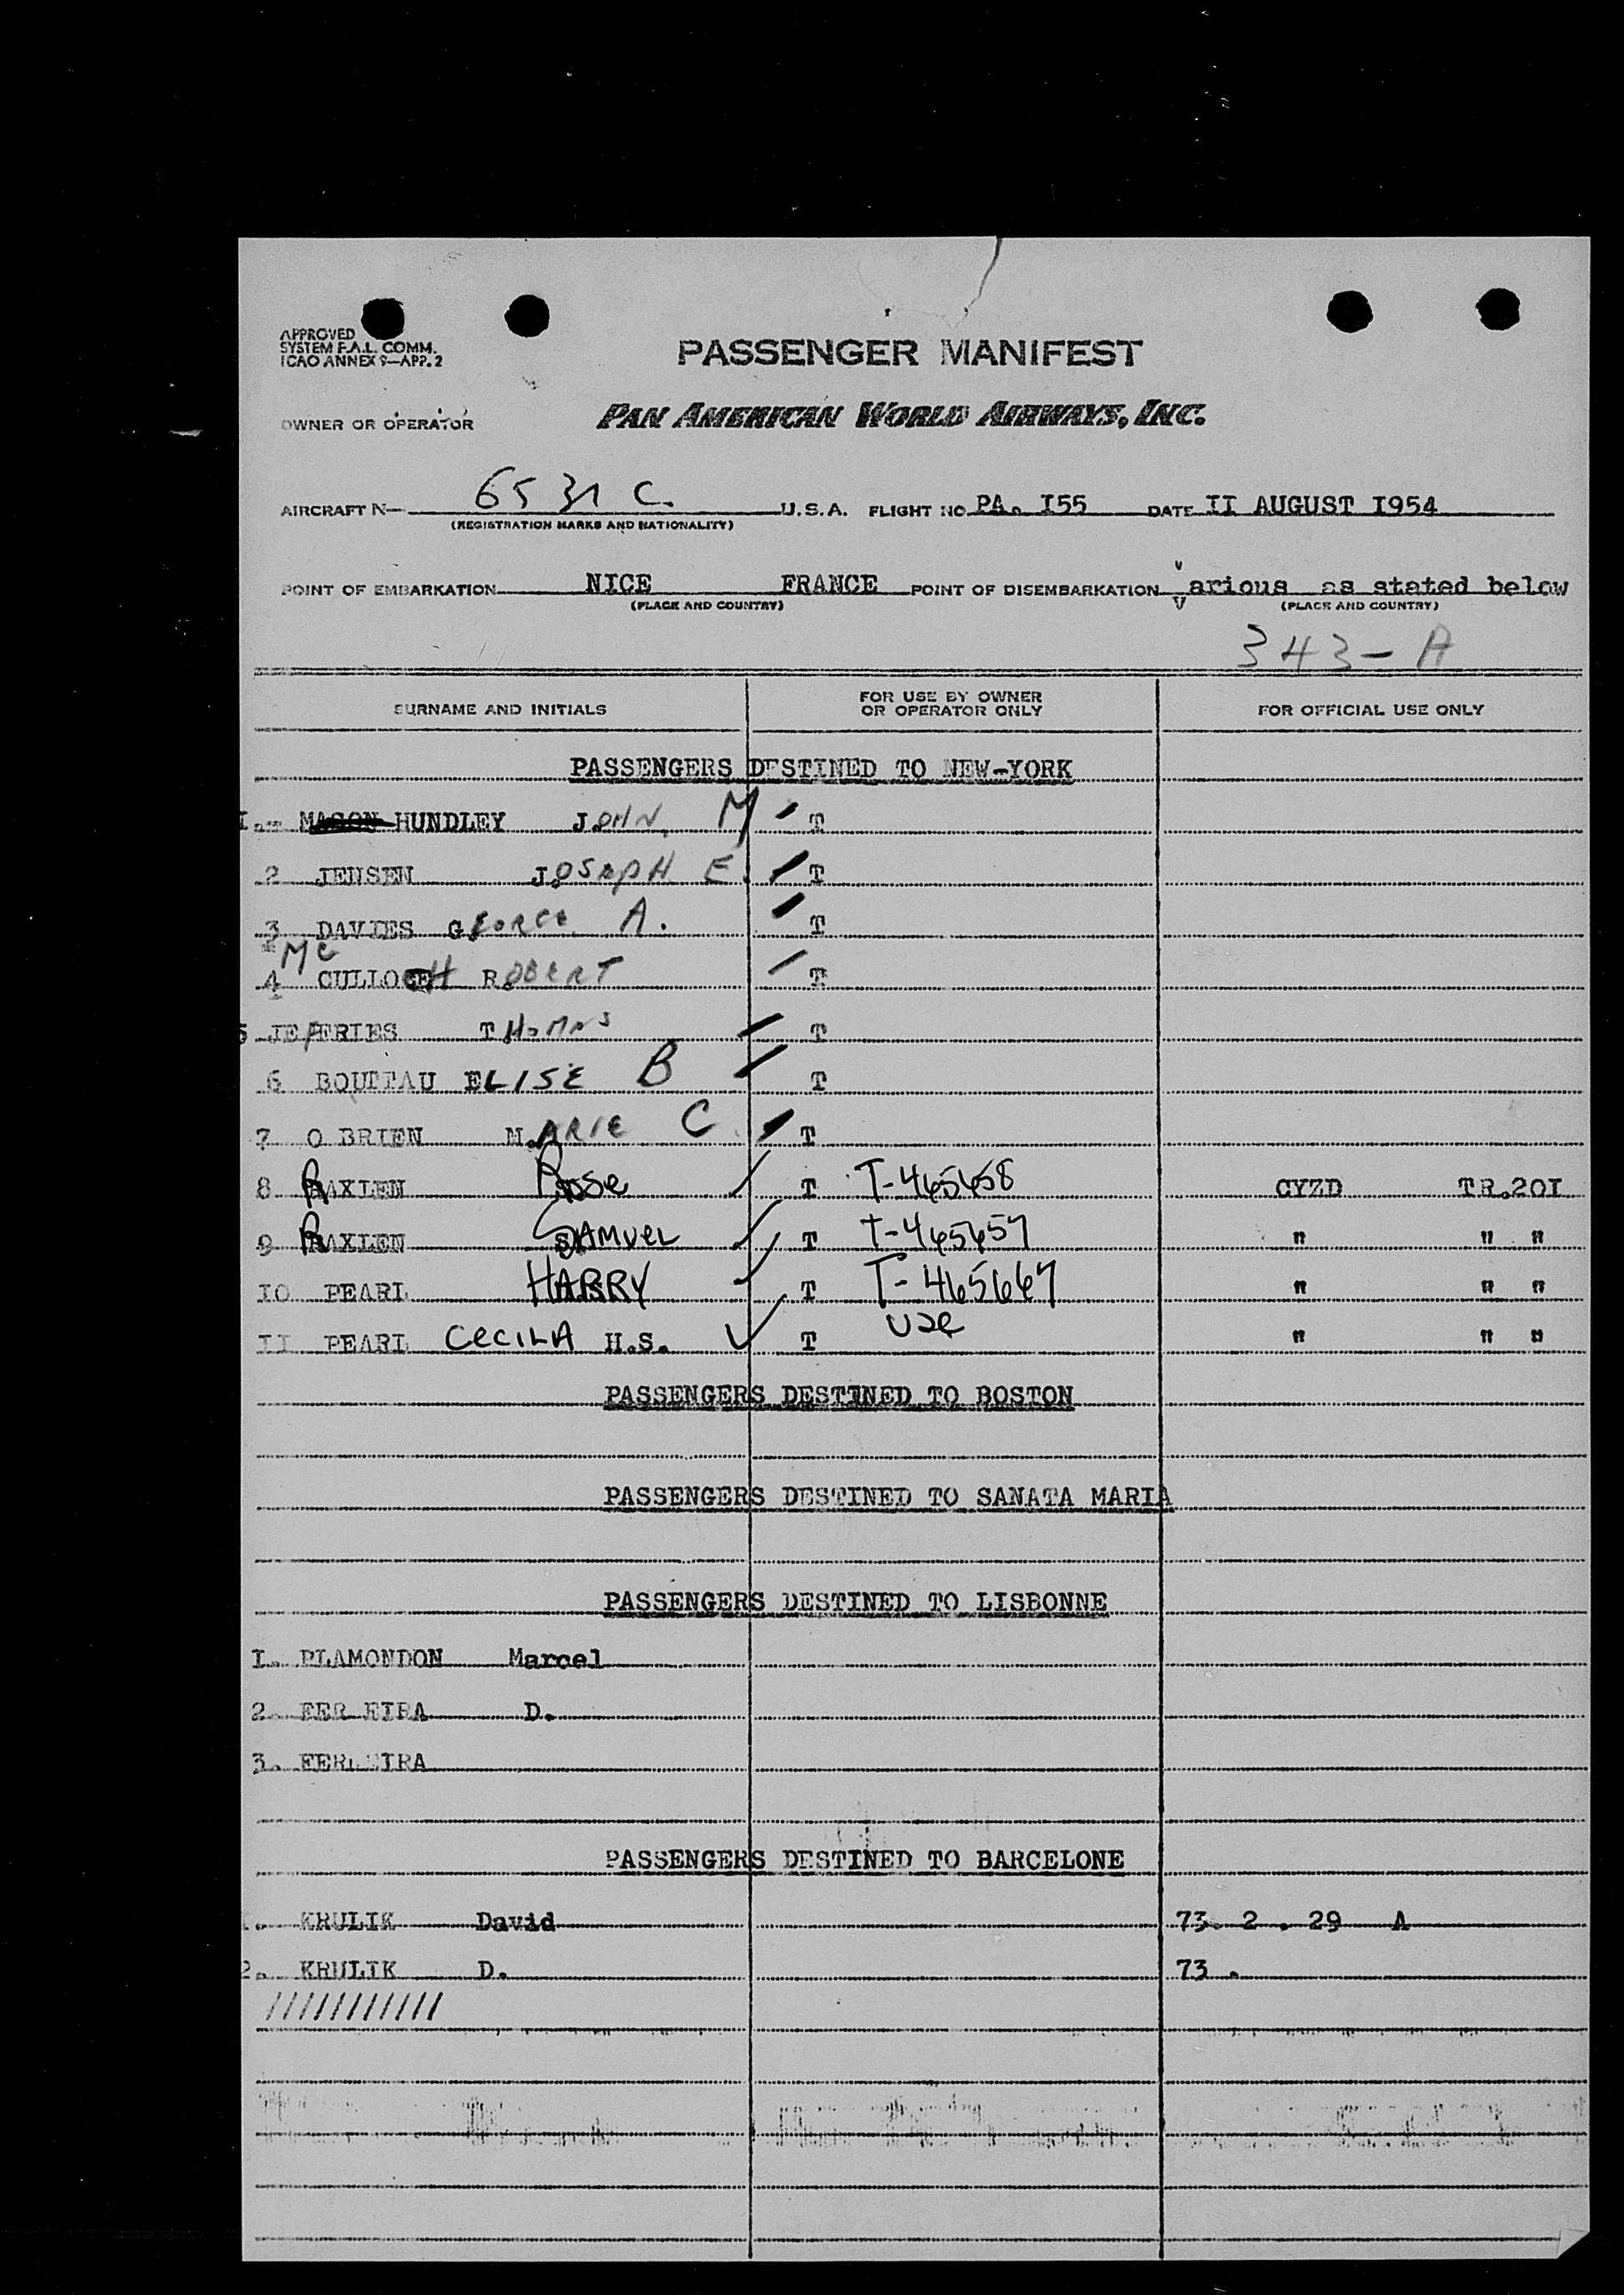 APPROVED
SYSTEM F.A.L. COMM.
ICAO ANNEX 9—APP. 2
PASSENGER MANIFEST
OWNER OR OPERATOR PAN AMERICAN WORLD AIRWAYS, INC.
AIRCRAFT N— 6531 C. U.S.A. FLIGHT NO PA. I55 DATE II AUGUST I954
(REGISTRATION MARKS AND NATIONALITY)
POINT OF EMBARKATION NICE FRANCE POINT OF DISEMBARKATION Various as stated below
(PLACE AND COUNTRY) (PLACE AND COUNTRY)
343-A
SURNAME AND INITIALS FOR USE BY OWNER OR OPERATOR ONLY FOR OFFICIAL USE ONLY
PASSENGERS DESTINED TO NEW-YORK
I.- HUNDLEY JOHN. M T
2 JENSEN JOSEPH E. T
3 DAVIES GEORGE A. T
4 MC CULLOCH ROBERT T
5 JEFFRIES THOMAS T
6 BOUTTAU ELISE B T
7 O BRIEN MARIE C T
8 RAXLEN Rose T T-465658 CYZD TR.20I
9 RAXLEN SAMUEL T T-465657 " " "
IO PEARL HARRY T T-465667 " " "
II PEARL CECILA H.S. T use " " "
PASSENGERS DESTINED TO BOSTON
PASSENGERS DESTINED TO SANATA MARIA
PASSENGERS DESTINED TO LISBONNE
I. PLAMONDON Marcel
2. FERREIRA D.
3. FERREIRA
PASSENGERS DESTINED TO BARCELONE
I. KRULIK David 73. 2 . 29 A
2. KRULIK D. 73 .
///////////